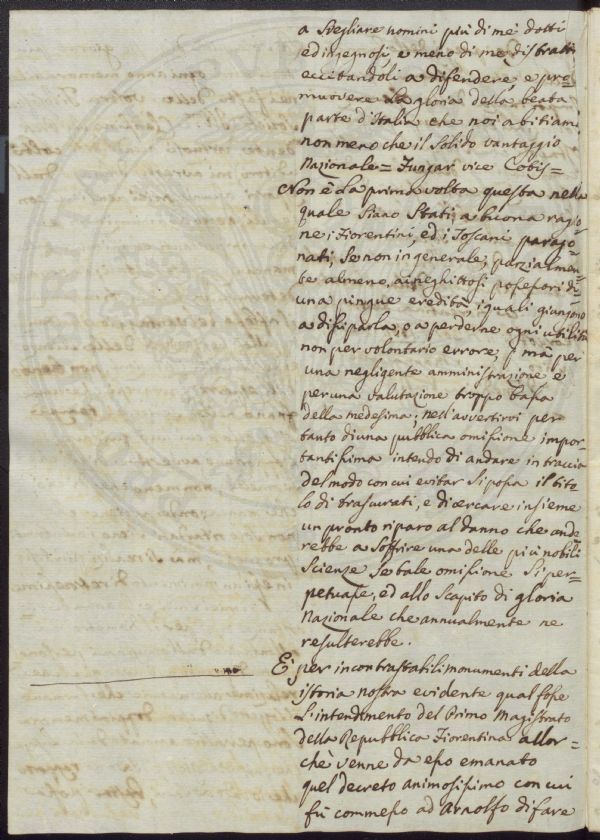 a svegliare uomini più di me dotti
ed ingegnosi, e meno di me distratti
eccitandoli a difendere, e pro=
muovere la gloria della beata
parte d'Italia che noi abitiami
non meno che il solido vantaggio
Nazionale = Fungar vice Cotis =
Non è la prima volta questa nella
quale siano stati, a buona ragio=
ne, i Fiorentini, ed i Toscani parago=
nati, se non in generale, parzialmen=
te almeno, ai neghittosi possessori di
una pingue eredità, i quali giungono
a dissiparla, o a perderne ogni utilità
non per volontario errore, mà per
una negligente amministrazione e
per una valutazione troppo bassa
della medesima; nell'avvertirvi per
tanto di una pubblica omissione impor=
tantissima intendo di andare in traccia
del modo con cui evitar si possa il tito
lo di trascurati, e di cercare insieme
un pronto riparo al danno che ande
rebbe a soffrire una delle più nobili
scienze se tale omissione si per=
petuasse, ed allo scapito di gloria
Nazionale che annualmente ne
resulterebbe.
E' per incontrastabili monumenti della
istoria nostra evidente qual fosse
l'intendimento del Primo Magistrato
della Repubblica Fiorentina allor=
chè venne da esso emanato
quel decreto animosissimo con cui
fù commesso ad Arnolfo di fare